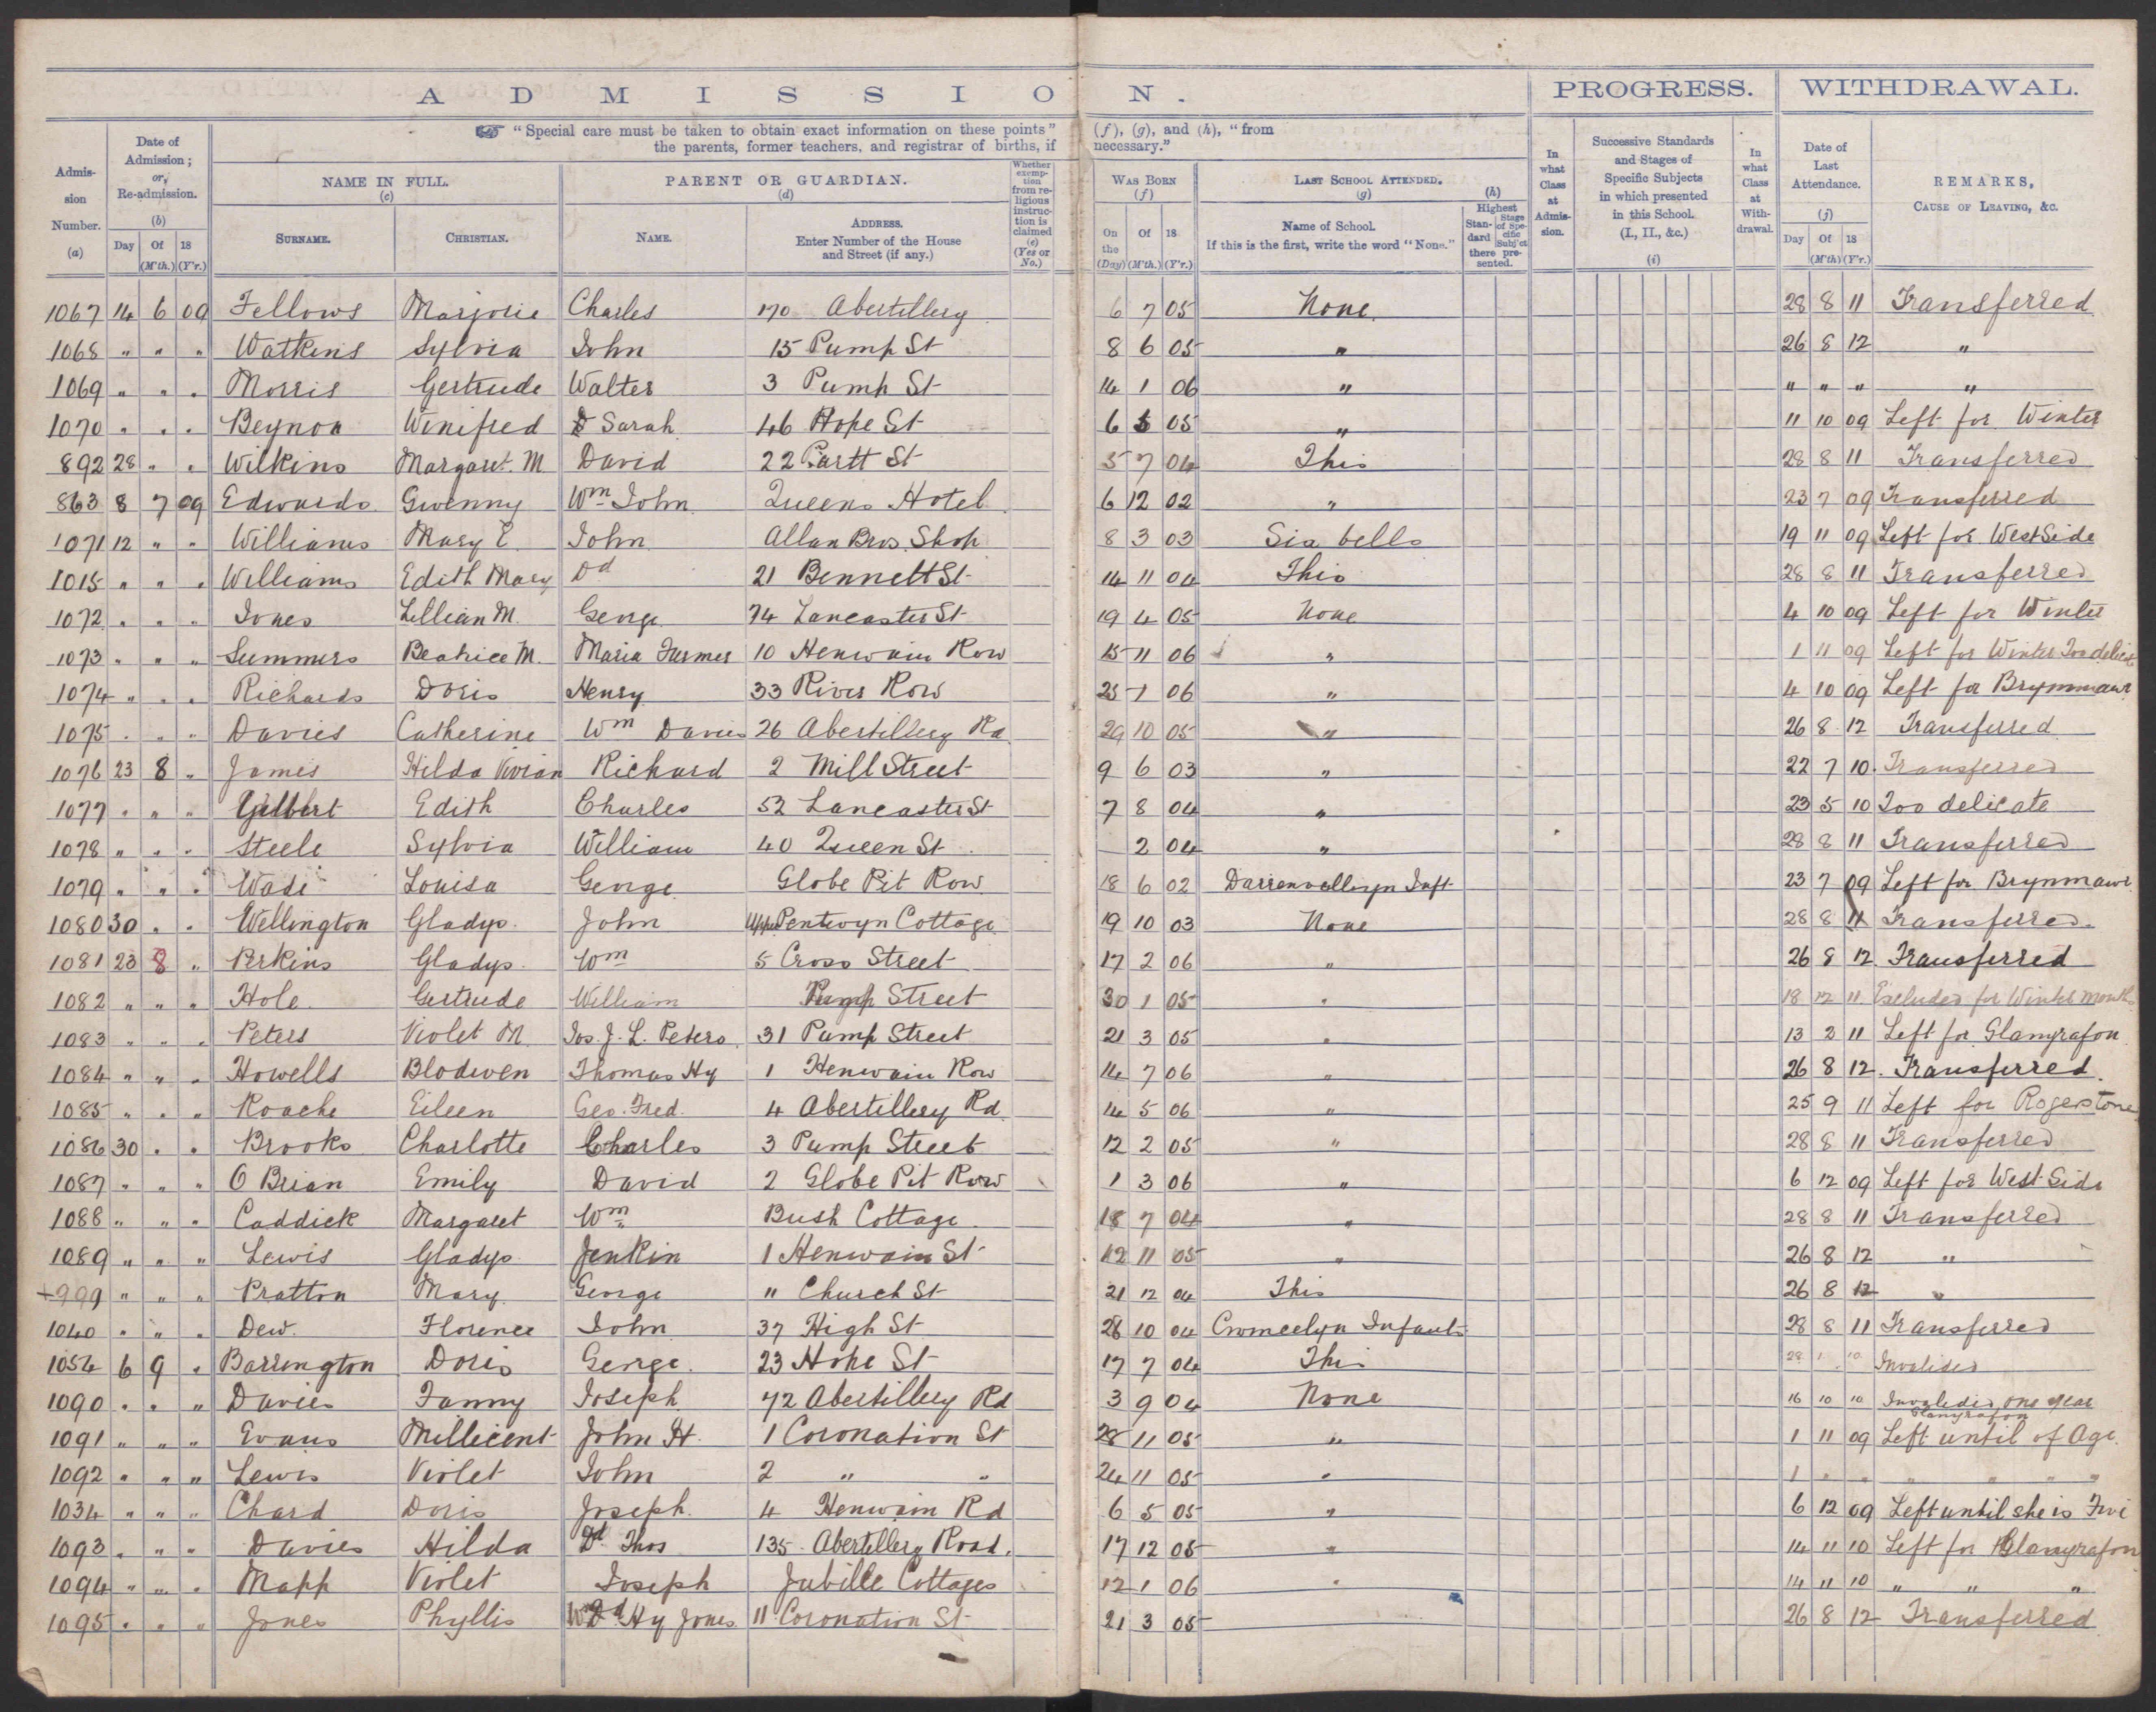 ADMISSION.
PROGRESS.
WITHDRAWAL.
"Special care must be taken to obtain exact information on these points" (f), (g), and (h), "from
the parents, former teachers, and registrar of births, if necessary."
Admission Number. (a)
Date of Admission; or, Re-admission. (b)
Day Of (M'th.) 18 (Y'r.)
NAME IN FULL. (c)
SURNAME. CHRISTIAN.
PARENT OR GUARDIAN. (d)
NAME. ADDRESS. Enter Number of the House and Street (if any.)
Whether exemption from religious instruction is claimed (e) (Yes or No.)
WAS BORN (f)
On the (Day) Of (M'th.) 18 (Y'r.)
LAST SCHOOL ATTENDED. (g)
Name of School. If this is the first, write the word "None."
(h) Highest Standard Stage of Specific Subj'ct there presented.
In what Class at Admission.
Successive Standards and Stages of Specific Subjects in which presented in this School. (I., II., &c.) (i)
In what Class at Withdrawal.
Date of Last Attendance. (j)
Day Of (M'th) 18 (Y'r.)
REMARKS, CAUSE OF LEAVING, &c.
1067 14 6 09 Fellows Marjorie Charles 170 Abertillery 6 7 05 None 28 8 11 Transferred
1068 " " " Watkins Sylvia John 15 Pump St 8 6 05 " 26 8 12 "
1069 " " " Morris Gertrude Walter 3 Pump St 14 1 06 " " " " "
1070 " " " Beynon Winifred Sarah 46 Hope St 6 5 05 " 11 10 09 Left for Winter
892 28 " " Wilkins Margaret M David 22 St 5 7 04 This 28 8 11 Transferred
863 8 7 09 Edwards Gwenny Wm John Queens Hotel 6 12 02 " 23 7 09 Transferred
1071 12 " " Williams Mary E John Allan Bros. Shop 8 3 03 Six bells 19 11 09 Left for West Side
1015 " " " Williams Edith Mary Dd 21 Bennett St 14 11 04 This 28 8 11 Transferred
1072 " " " Jones Lillian M. George 74 Lancaster St 19 4 05 None 4 10 09 Left for Winter
1073 " " " Summers Beatrice M. Maria Turmer 10 Henwain Row 15 11 06 " 1 11 09 Left for Winter Too delicate
1074 " " " Richards Doris Henry 33 River Row 25 1 06 " 4 10 09 Left for Brynmawr
1075 " " " Davies Catherine Wm Davies 26 Abertillery Rd 29 10 05 " 26 8 12 Transferred
1076 23 8 " James Hilda Vivian Richard 2 Mill Street 9 6 03 " 22 7 10 Transferred
1077 " " " Gilbert Edith Charles 52 Lancaster St 7 8 04 " 23 5 10 Too delicate
1078 " " " Steele Sylvia William 40 Queen St 2 04 " 28 8 11 Transferred
1079 " " " Wade Louisa George Globe Pit Row 18 6 02 Darrenvellwyn Inft 23 7 09 Left for Brynmawr
1080 30 " " Wellington Gladys John Upper Pentwyn Cottage 19 10 03 None 28 8 11 Transferred
1081 23 8 " Perkins Gladys Wm 5 Cross Street 17 2 06 " 26 8 12 Transferred
1082 " " " Hole Gertrude William Pump Street 30 1 05 " 18 12 11 Excluded for Winter months
1083 " " " Peters Violet M. Jos. J. L. Peters 31 Pump Street 21 3 05 " 13 2 11 Left for Glanyrafon
1084 " " " Howells Blodwen Thomas Hy 1 Henwain Row 14 7 06 " 26 8 12 Transferred
1085 " " " Roache Eileen Geo. Fred. 4 Abertillery Rd 14 5 06 " 25 9 11 Left for Rogerstone
1086 30 " " Brooks Charlotte Charles 3 Pump Street 12 2 05 " 28 8 11 Transferred
1087 " " " O Brian Emily David 2 Globe Pit Row 1 3 06 " 6 12 09 Left for West Side
1088 " " " Caddick Margaret Wm Bush Cottage 18 7 04 " 28 8 11 Transferred
1089 " " " Lewis Gladys Jenkin 1 Henwain St 12 11 05 " 26 8 12 "
+999 " " " Pratton Mary George " Church St 21 12 04 This 26 8 12 "
1040 " " " Dew Florence John 37 High St 28 10 04 Cwmcelyn Infants 28 8 11 Transferred
1054 6 9 " Barrington Doris George 23 Hope St 17 7 04 This 28 1 10 Invalided
1090 " " " Davies Fanny Joseph 72 Abertillery Rd 3 9 04 None 16 10 10 Invalided one year
1091 " " " Evans Millicent John H. 1 Coronation St 28 11 05 " 1 11 09 Glanyrafon Left until of Age
1092 " " " Lewis Violet John 2 " " 24 11 05 " 1 " " " " " "
1034 " " " Chard Doris Joseph 4 Henwain Rd 6 5 05 " 6 12 09 Left until she is Five
1093 " " " Davies Hilda Dd. Thos 135 Abertillery Road. 17 12 05 " 14 11 10 Left for Glanyrafon
1094 " " " Mapp Violet Joseph Jubille Cottages 12 1 06 " 14 11 10 " " "
1095 " " " Jones Phyllis Hy Jones 11 Coronation St 21 3 05 26 8 12 Transferred